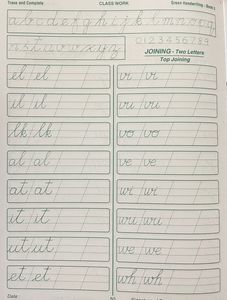 Trace and Complete CLASS WORK Green Handwriting - Book 3
a b c d e f g h i j k l m n o p q
r s t u v w x y z 0 1 2 3 4 5 6 7 8 9
JOINING - Two Letters
Top Joining
el el vi vi
ul ul vu vu
lk lk vo vo
al al ve ve
at at wi wi
it it wu wu
ut ut we we
et et wh wh
Date :